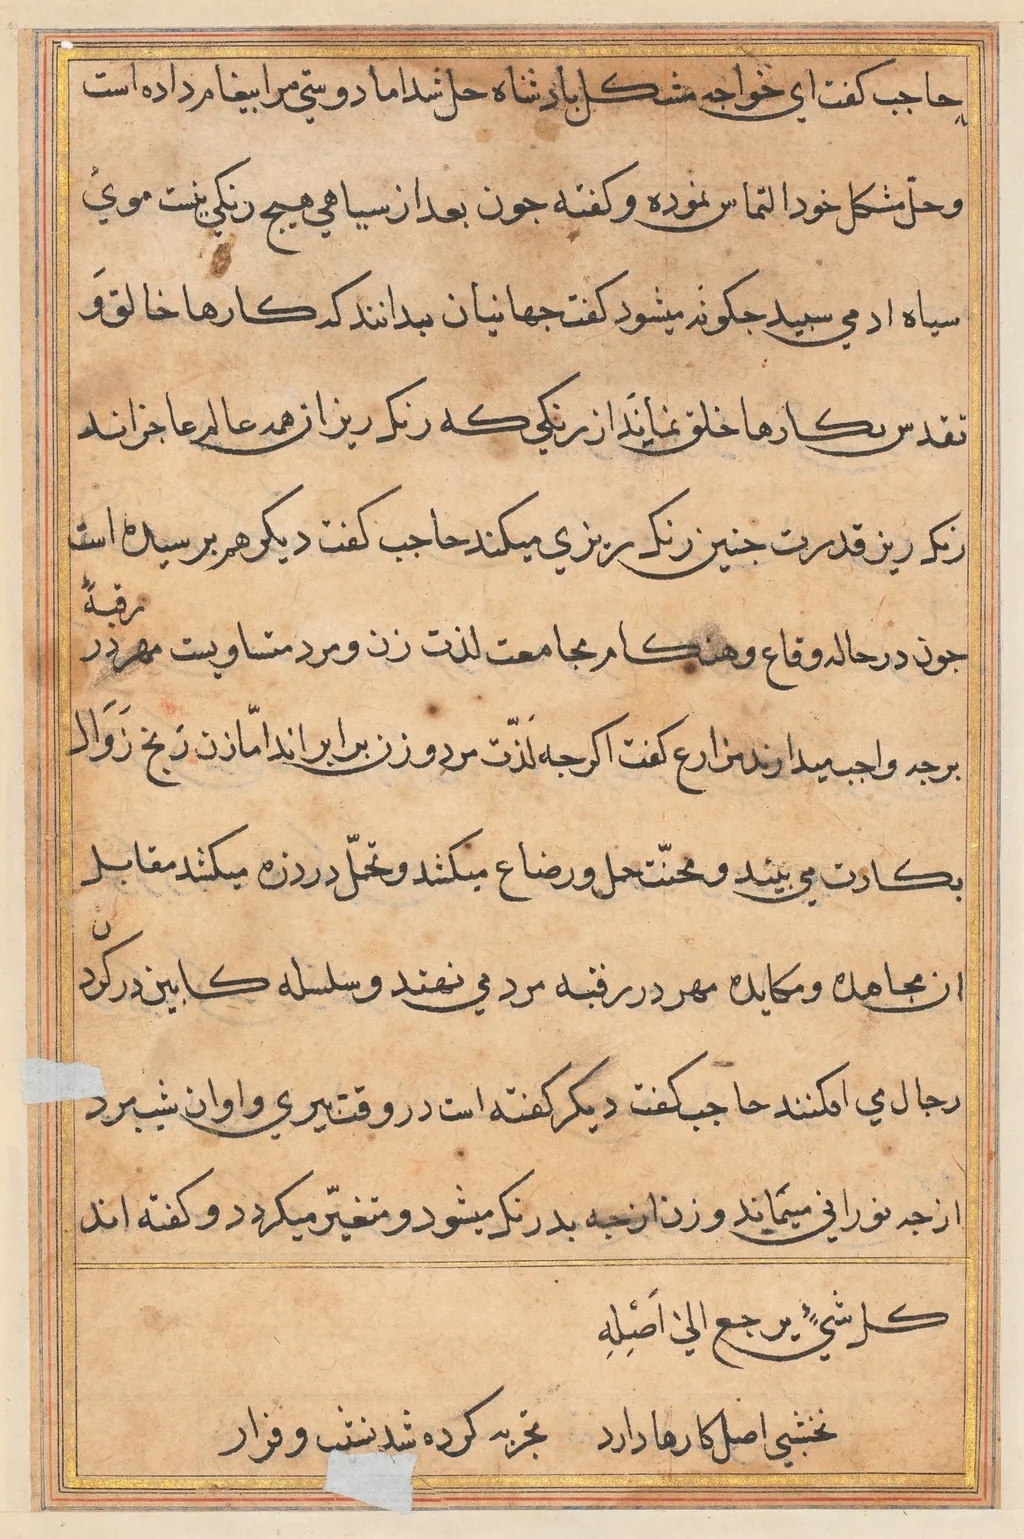 حاجب کفت ای خواجه مشکل بادشاه حل شد اما دوستی مرا بیغام داده است
و حلّ مشکل خود التماس نموده و کفته جون بعد از سیاهی هیج رنکی نیست موی
سیاه ادمی سبید جکونه میشود کفت جهانیان بدانند که کارها خالق وَ
تقدس بکارها خلق نمایند از رنکی که رنک ریزان همه عالم عاجز اند
رنک ریز قدرت جنین رنک ریزی میکند حاجب کفت دیکر هم برسیده است
جون در حاله وقاع و هنکام مجامعت لذت زن و مرد متساویست مهر در رقبهٔ
برجه واجب میدارند مزارع کفت اکرجه لَذّت مرد و زن برابر اند امّا زن رَنج زَوَال
بکارت می بیند و محنّت حمل و رضاع میکشد و تحمّل درد زه میکشد مقابل
ان مجاهده و مکابده مهر در رقبه مرد می نهند و سلسله کابین در کردن
رجال می افکنند حاجب کفت دیکر کفته است در وقت بیری و اوان شیب مرد
از جه نورانی میَماید و زن از جه بد رنک میشود و متغیّر میکردد و کفته اند
کل شیءٍ یرجع الیٰ اَصْلِهِ
نخشبی اصل کارها دارد تجربه کرده شد نشیب و فراز